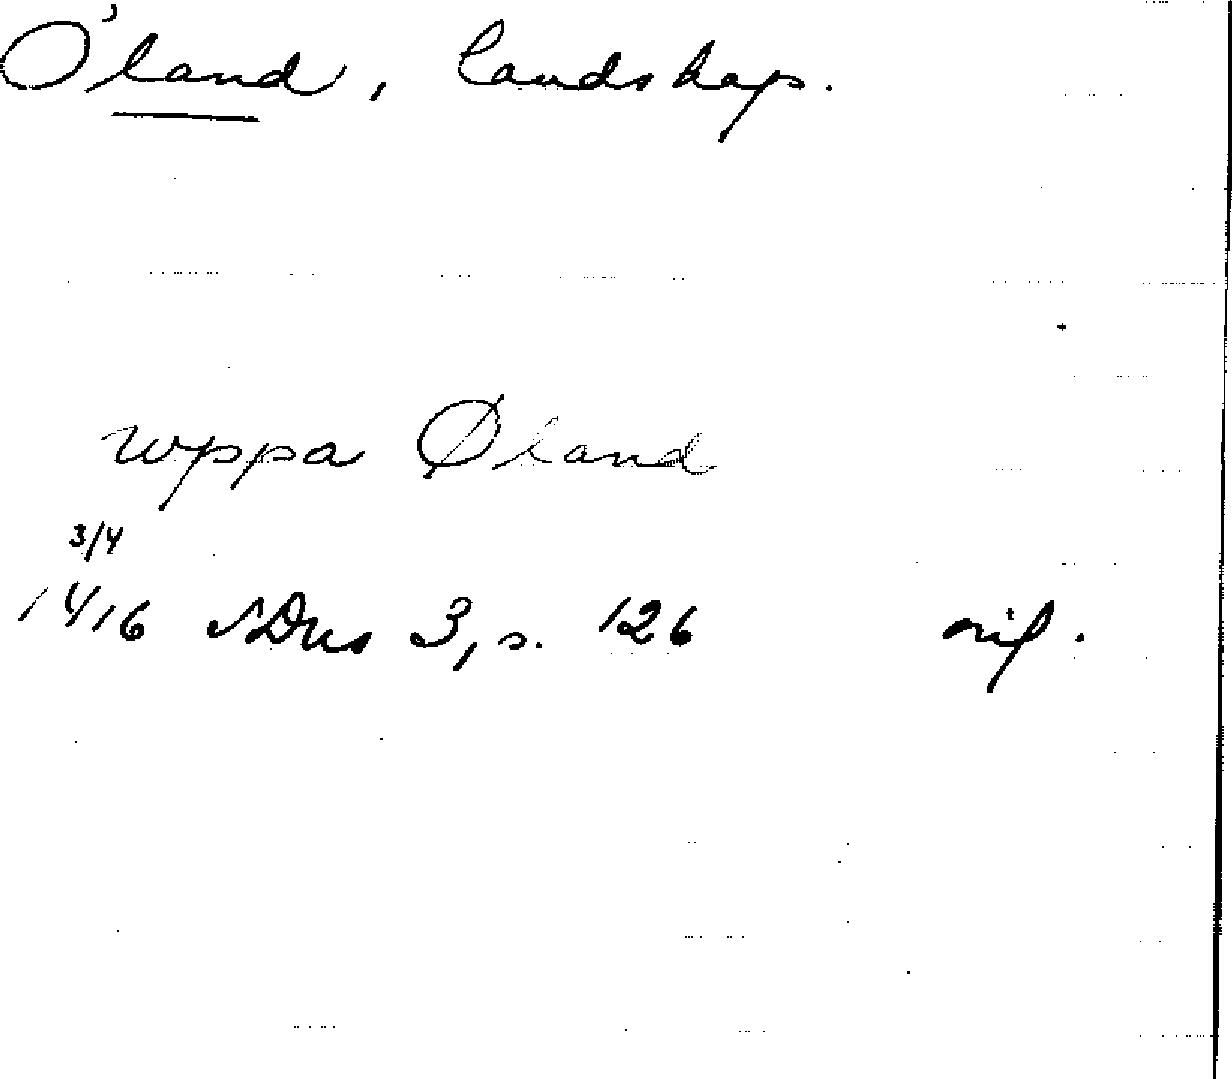 Öland, landskap.
wppa Øland
3/4
1416 SDns 3, s. 126 or.